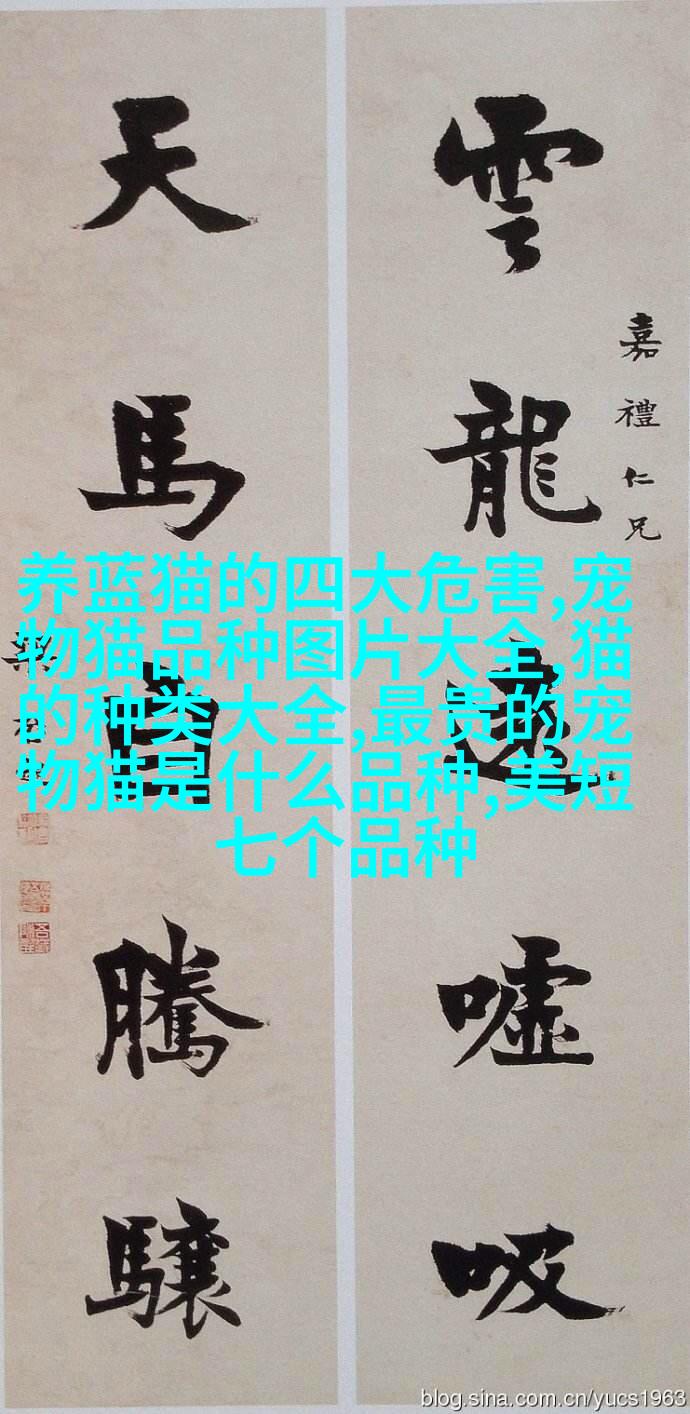 雲龍噓吸
嘉禮仁兄
天馬騰驤
养蓝猫的四大危害,宠
物猫品种图片大全,猫
的种类大全,最贵的宠
物猫是什么品种,美短
七个品种
blog.sina.com.cn/yucs1963